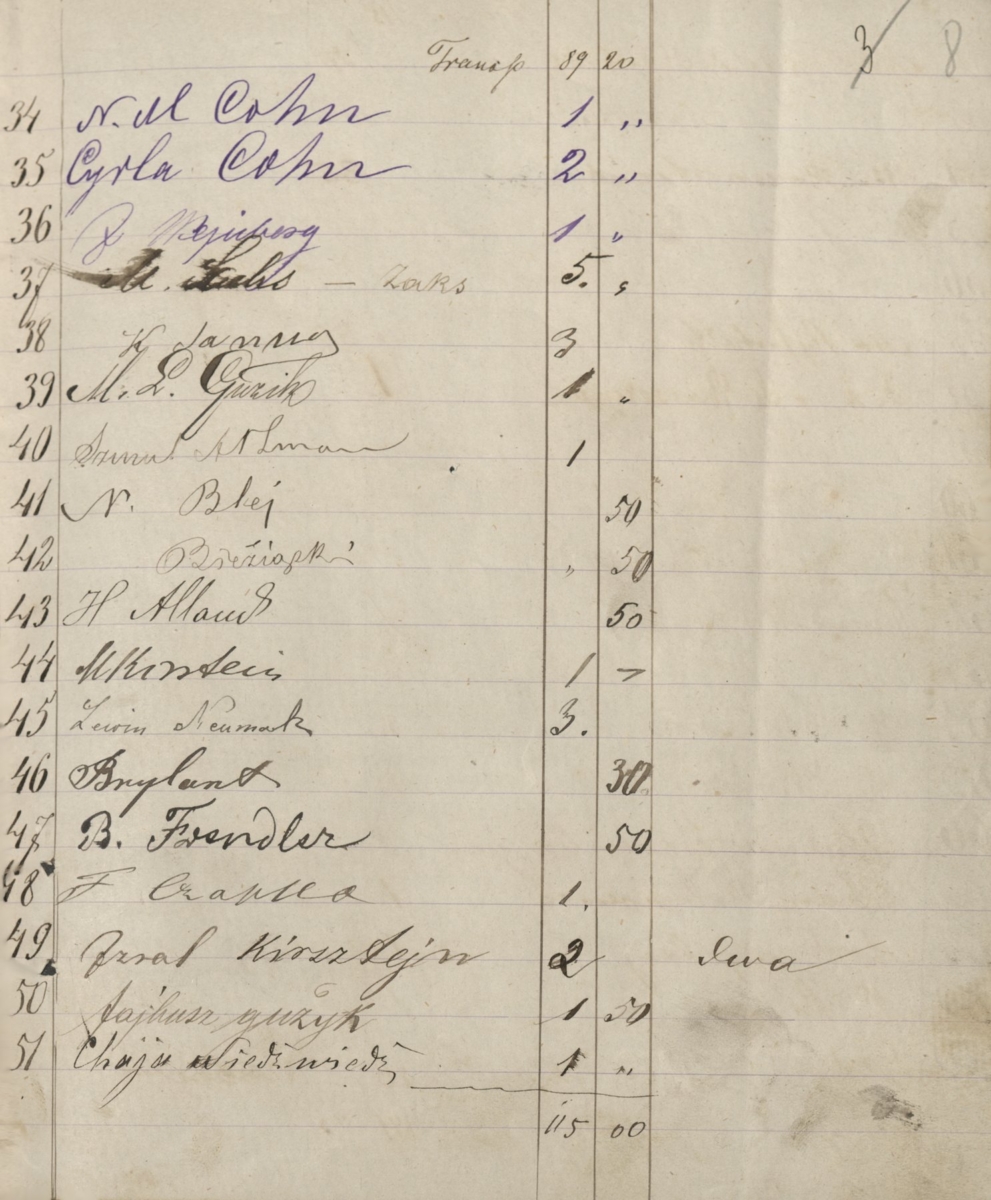 3 8
Transp 89 20
34 N. M Cohn 1 "
35 Cyrla Cohn 2 "
36 1 "
37 M. Saks — Zaks 5. "
38 K 3
39 M. L. Guzik 1 "
40 Szmul Altman 1
41 N. Blej 50
42 " 50
43 H 50
44 M Kirstein 1 —
45 Lewin Neumark 3.
46 Brylant 30
47 B. Frendler 50
48 F Czapka 1.
49 Izral Kirsztejn 2 dwa
50 fajbusz guzyk 1 50
51 Chaja niedźwiedź 1 "
115 00